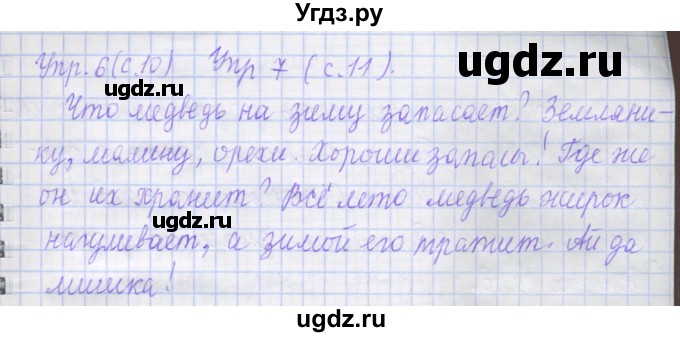 Угдз.ру
Упр. 6 (с.10) Упр 7 (с.11).
ugdz.ru
ugdz.ru
Что медведь на зиму запасает? Земляни-
ку, малину, орехи. Хороши запасы! Где же
он их хранит? Всё лето медведь жирок
ugdz.ru
ugdz.ru
нагуливает, а зимой его тратит. Ай да
мишка!
ugdz.ru